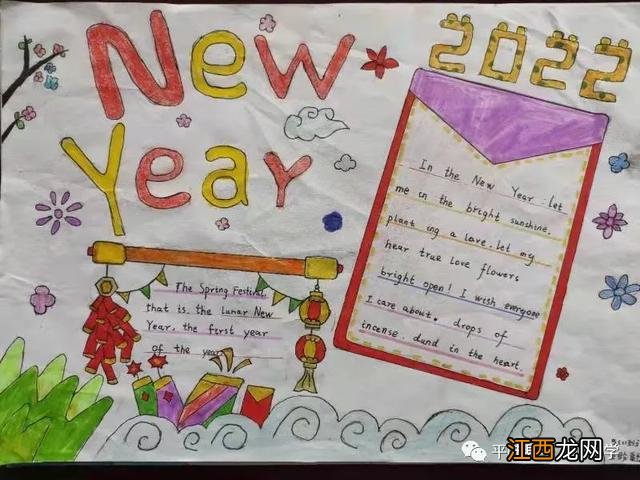 New
Year
2022
In the New Year :let
me in the bright sunshine.
plant ing a lave.let my
hear true love flowers
bright open! I wish everyone
I care about。 drops of
incense. dund in the heart.
The Spring Festival
that is. the Lunar New
Year, the first year
of the year
江西龙网